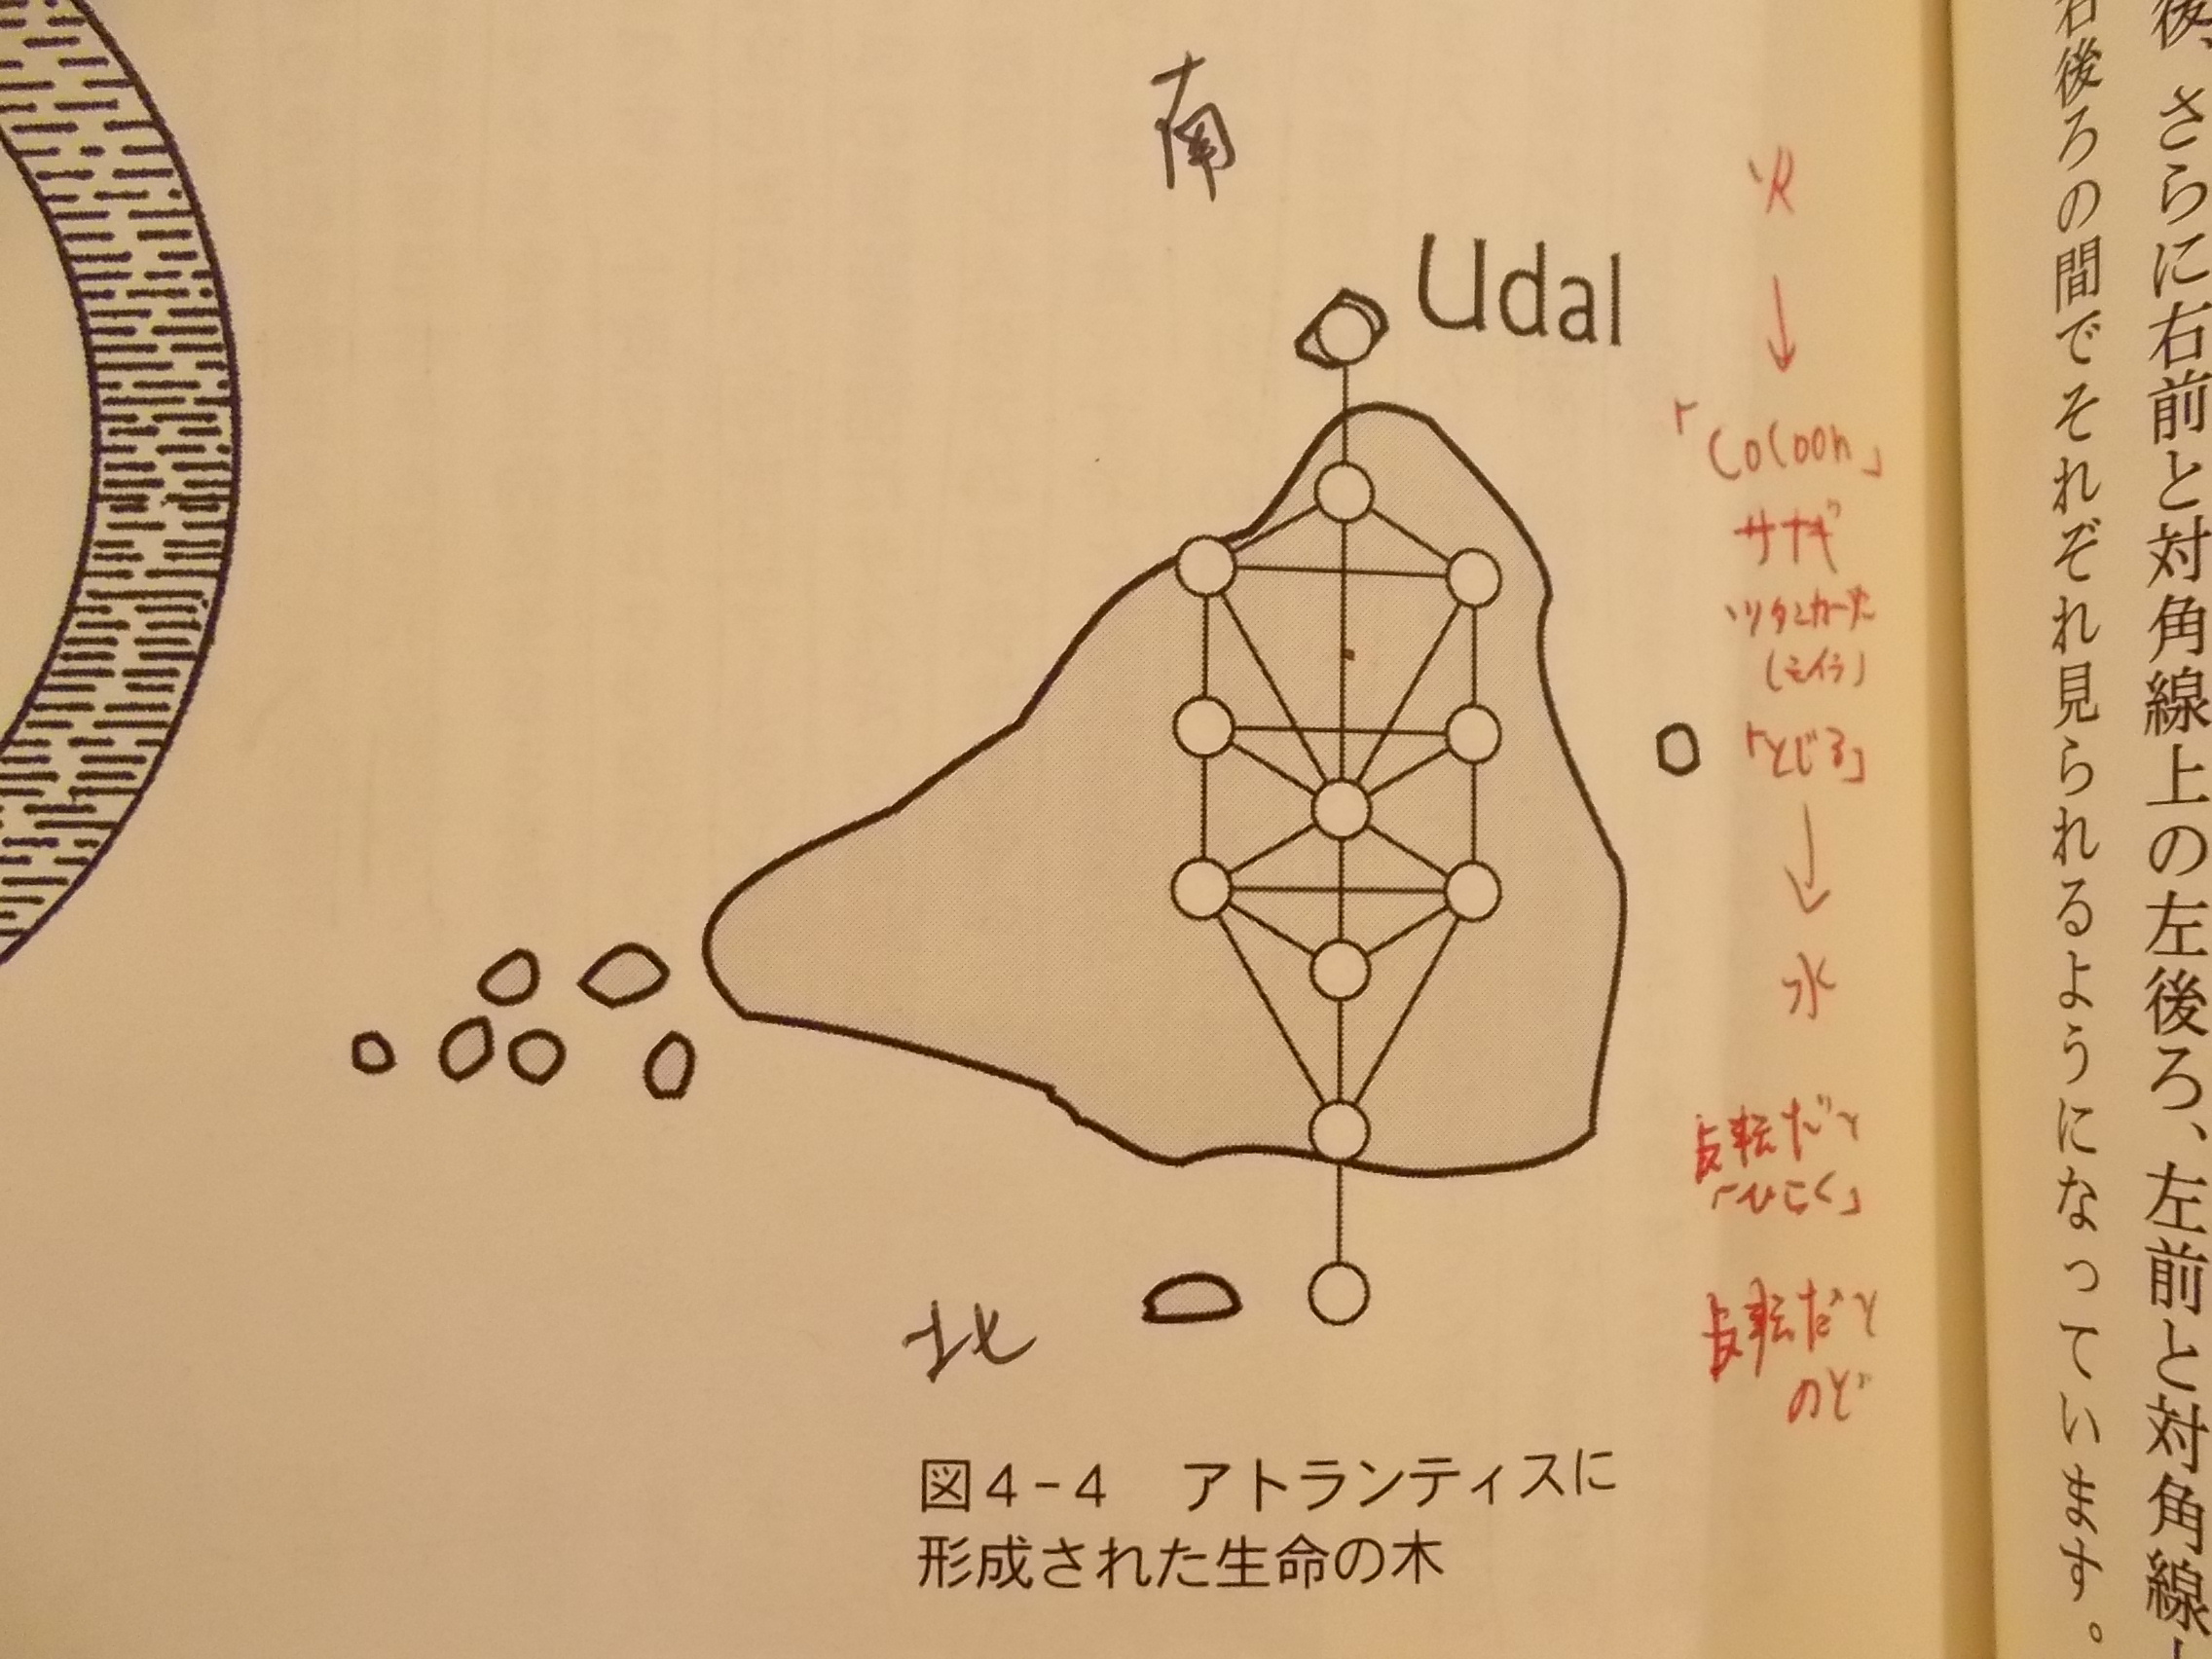 後、さらに右前と対角線上の左後ろ、左前と対角線
右後ろの間でそれぞれ見られるようになっています。
南
Udal
火
「Cocoon」
サナギ
ツタンカーメン
(ミイラ)
「とじる」
水
反転だと
「ひらく」
反転だと
のど
北
図4-4　アトランティスに
形成された生命の木